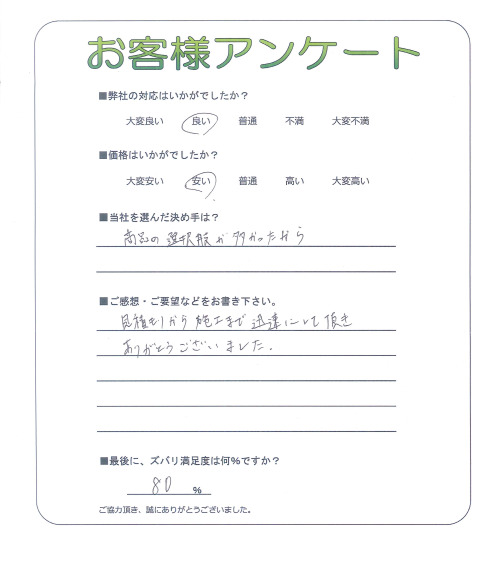 お客様アンケート
■弊社の対応はいかがでしたか？
大変良い 良い 普通 不満 大変不満
■価格はいかがでしたか？
大変安い 安い 普通 高い 大変高い
■当社を選んだ決め手は？
商品の選択肢が多かったから
■ご感想・ご要望などをお書き下さい。
見積もりから施工まで迅速にして頂き
ありがとうございました。
■最後に、ズバリ満足度は何%ですか？
80 %
ご協力頂き、誠にありがとうございました。